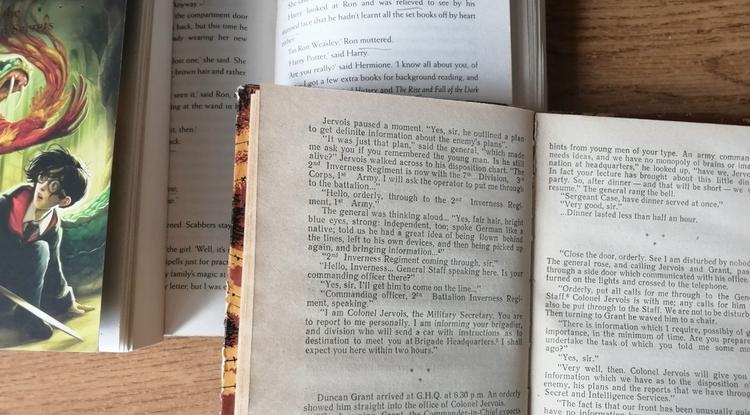 the
Secrets
Anyway –
the compartment door
back, but this time he
ady wearing her new
lost one,' she said.
brown hair and rather
,' said Ron,
ing at the wand in
it, then.'
neared. Scabbers stay
the girl. 'Well, it's
spells just for practice
family's magic at
letter, but I was
She said
Harry looked at Ron and was relieved to see by his
stunned face that he hadn't learnt all the set books off by heart
either.
'I'm Ron Weasley,' Ron muttered.
'Harry Potter,' said Harry.
'Are you really?' said Hermione. 'I know all about you, of
I got a few extra books for background reading, and
History and The Rise and Fall of the Dark
Jervois paused a moment. "Yes, sir, he outlined a plan
to get definite information about the enemy's plans".
"It was just that plan," said the general, "which made
me ask you if you remembered the young man. Is he still
alive?" Jervois walked across to his disposition chart. "The
2nd Inverness Regiment is now with the 7th Division, 3rd
Corps, 1st Army. I will ask the operator to put me through
to the battalion..."
"Hello, orderly, through to the 2nd Inverness Regi-
ment, 1st Army."
The general was thinking aloud... "Yes, fair hair, bright
blue eyes, strong; independent, too; spoke German like a
native; told us he had a great idea of being flown behind
the lines, left to his own devices, and then being picked up
again, and bringing information..."
"2nd Inverness Regiment coming through, sir."
"Hello, Inverness... General Staff speaking here. Is your
commanding officer there?"
"Yes, sir, I'll get him to come on the line..."
"Commanding officer, 2nd Battalion Inverness Regi-
ment, speaking."
"I am Colonel Jervois, the Military Secretary. You are
to report to me personally. I am informing your brigadier,
and division who will send a car with instructions as to
destination to meet you at Brigade Headquarters.⁵ I shall
expect you here within two hours."
* *
Duncan Grant arrived at G.H.Q. at 6.30 p.m. An orderly
showed him straight into the office of Colonel Jervois.
Grant, the Commander-in-Chief expects
hints from young men of your type. An army comman
needs ideas, and we have no monopoly of brains or ima
nation at headquarters," he looked up, "have we, Jervoi
In fact your lecture has brought about this little din
party. So, after dinner — and that will be short — we
resume." The general rang the bell.
"Sergeant Case, have dinner served at once."
"Very good, sir."
...Dinner lasted less than half an hour.
* *
*
"Close the door, orderly. See I am disturbed by nobod
The general rose, and calling Jervois and Grant, pas
through a side door which communicated with his office.
turned on the lights and crossed to the telephone.
"Orderly, put all calls for me through to the Gen
Staff.⁶ Colonel Jervois is with me; any calls for him
also be put through to the Staff. We are not to be disturb
Then turning to Grant he waved him to a chair.
"There is information which I require, possibly of g
importance, in the minimum of time. Are you prepare
undertake the task of which you told me some m
ago?"
"Yes, sir."
"Very well, then. Colonel Jervois will give you
information which we have as to the disposition o
enemy, his plans and the reports that we have throug
Secret and Intelligence Services."
"The fact is that our front has been unusually
have no information